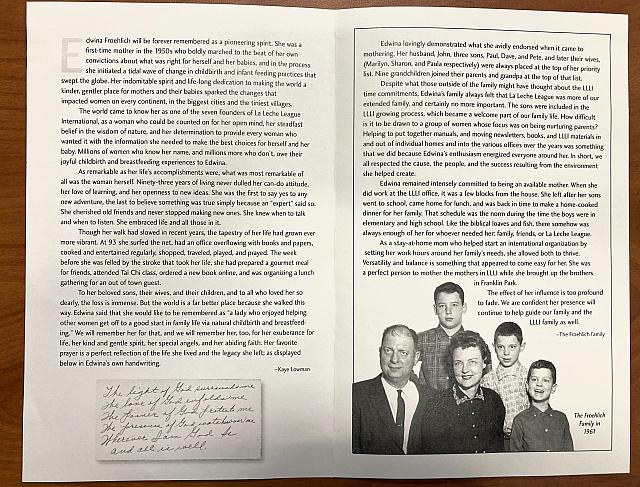 Edwina Froehlich will be forever remembered as a pioneering spirit. She was a
first-time mother in the 1950s who boldly marched to the beat of her own
convictions about what was right for herself and her babies, and in the process
she initiated a tidal wave of change in childbirth and infant feeding practices that
swept the globe. Her indomitable spirit and life-long dedication to making the world a
kinder, gentler place for mothers and their babies sparked the changes that
impacted women on every continent, in the biggest cities and the tiniest villages.
The world came to know her as one of the seven founders of La Leche League
International, as a woman who could be counted on for her open mind, her steadfast
belief in the wisdom of nature, and her determination to provide every woman who
wanted it with the information she needed to make the best choices for herself and her
baby. Millions of women who know her name, and millions more who don't, owe their
joyful childbirth and breastfeeding experiences to Edwina.
As remarkable as her life's accomplishments were, what was most remarkable of
all was the woman herself. Ninety-three years of living never dulled her can-do attitude,
her love of learning, and her openness to new ideas. She was the first to say yes to any
new adventure, the last to believe something was true simply because an "expert" said so.
She cherished old friends and never stopped making new ones. She knew when to talk
and when to listen. She embraced life and all those in it.
Though her walk had slowed in recent years, the tapestry of her life had grown ever
more vibrant. At 93 she surfed the net, had an office overflowing with books and papers,
cooked and entertained regularly, shopped, traveled, played, and prayed. The week
before she was felled by the stroke that took her life, she had prepared a gourmet meal
for friends, attended Tai Chi class, ordered a new book online, and was organizing a lunch
gathering for an out of town guest.
To her beloved sons, their wives, and their children, and to all who loved her so
dearly, the loss is immense. But the world is a far better place because she walked this
way. Edwina said that she would like to be remembered as "a lady who enjoyed helping
other women get off to a good start in family life via natural childbirth and breastfeed-
ing." We will remember her for that, and we will remember her, too, for her exuberance for
life, her kind and gentle spirit, her special angels, and her abiding faith. Her favorite
prayer is a perfect reflection of the life she lived and the legacy she left; as displayed
below in Edwina's own handwriting.
–Kaye Lowman
The light of God surrounds me
The love of God enfolds me
The power of God protects me
The presence of God watches over me
Wherever I am God is
and all is well.
Edwina lovingly demonstrated what she avidly endorsed when it came to
mothering. Her husband, John, three sons, Paul, Dave, and Pete, and later their wives,
(Marilyn, Sharon, and Paula respectively) were always placed at the top of her priority
list. Nine grandchildren joined their parents and grandpa at the top of that list.
Despite what those outside of the family might have thought about the LLLI
time commitments, Edwina's family always felt that La Leche League was more of our
extended family, and certainly no more important. The sons were included in the
LLLI growing process, which became a welcome part of our family life. How difficult
is it to be drawn to a group of women whose focus was on being nurturing parents?
Helping to put together manuals, and moving newsletters, books, and LLLI materials in
and out of individual homes and into the various offices over the years was something
that we did because Edwina's enthusiasm energized everyone around her. In short, we
all respected the cause, the people, and the success resulting from the environment
she helped create.
Edwina remained intensely committed to being an available mother. When she
did work at the LLLI office, it was a few blocks from the house. She left after her sons
went to school, came home for lunch, and was back in time to make a home-cooked
dinner for her family. That schedule was the norm during the time the boys were in
elementary and high school. Like the biblical loaves and fish, there somehow was
always enough of her for whoever needed her: family, friends, or La Leche League.
As a stay-at-home mom who helped start an international organization by
setting her work hours around her family's needs, she allowed both to thrive.
Versatility and balance is something that appeared to come easy for her. She was
a perfect person to mother the mothers in LLLI while she brought up the brothers
in Franklin Park.
The effect of her influence is too profound
to fade. We are confident her presence will
continue to help guide our family and the
LLLI family as well.
–The Froehlich Family
The Froehlich
Family in
1961